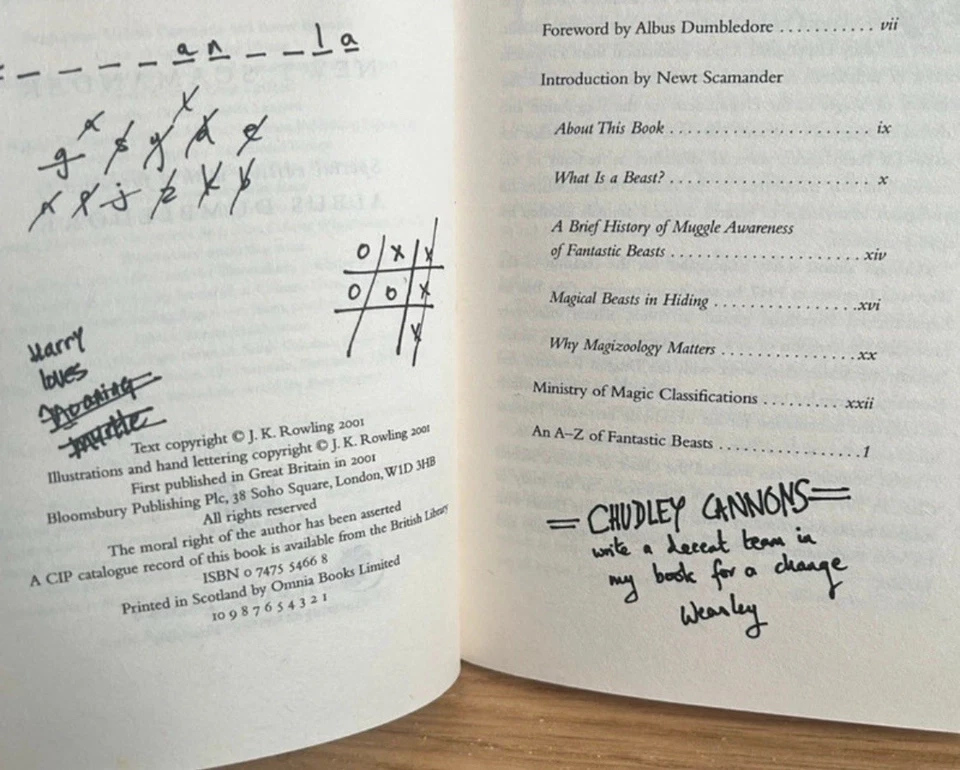 _ _ _ _ a n _ _ l a
g s y d e
j z k b
O X X
O O X
X
Harry
loves
Moaning
Myrtle
Text copyright © J. K. Rowling 2001
Illustrations and hand lettering copyright © J. K. Rowling 2001
First published in Great Britain in 2001
Bloomsbury Publishing Plc, 38 Soho Square, London, W1D 3HB
All rights reserved
The moral right of the author has been asserted
A CIP catalogue record of this book is available from the British Library
ISBN 0 7475 5466 8
Printed in Scotland by Omnia Books Limited
10 9 8 7 6 5 4 3 2 1
Foreword by Albus Dumbledore ........... vii
Introduction by Newt Scamander
About This Book ...................... ix
What Is a Beast? ...................... x
A Brief History of Muggle Awareness
of Fantastic Beasts ................... xiv
Magical Beasts in Hiding .............. xvi
Why Magizoology Matters ............. xx
Ministry of Magic Classifications ......... xxii
An A–Z of Fantastic Beasts ............... 1
= CHUDLEY CANNONS =
write a decent team in
my book for a change
Weasley